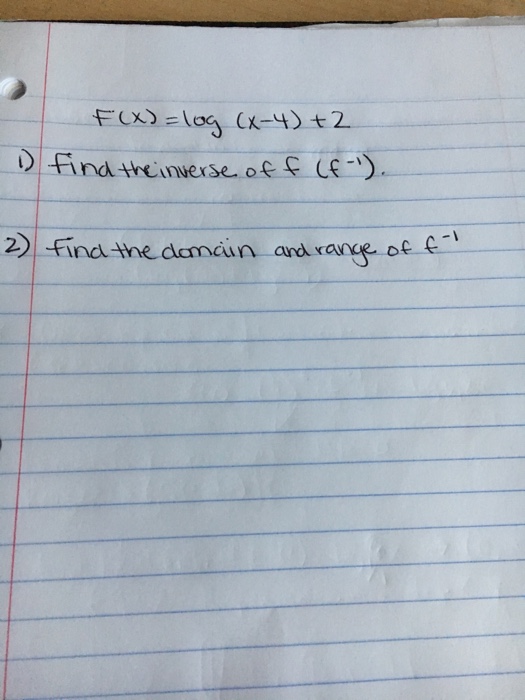 F(x) = log (x-4) + 2
1) find the inverse of f (f⁻¹).
2) find the domain and range of f⁻¹